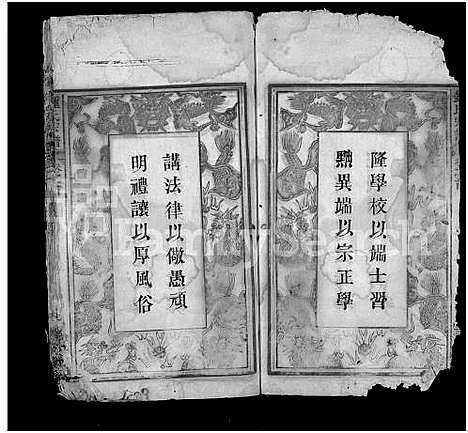 隆學校以端士習
黜異端以宗正學
講法律以儆愚頑
明禮讓以厚風俗
FamilySearch